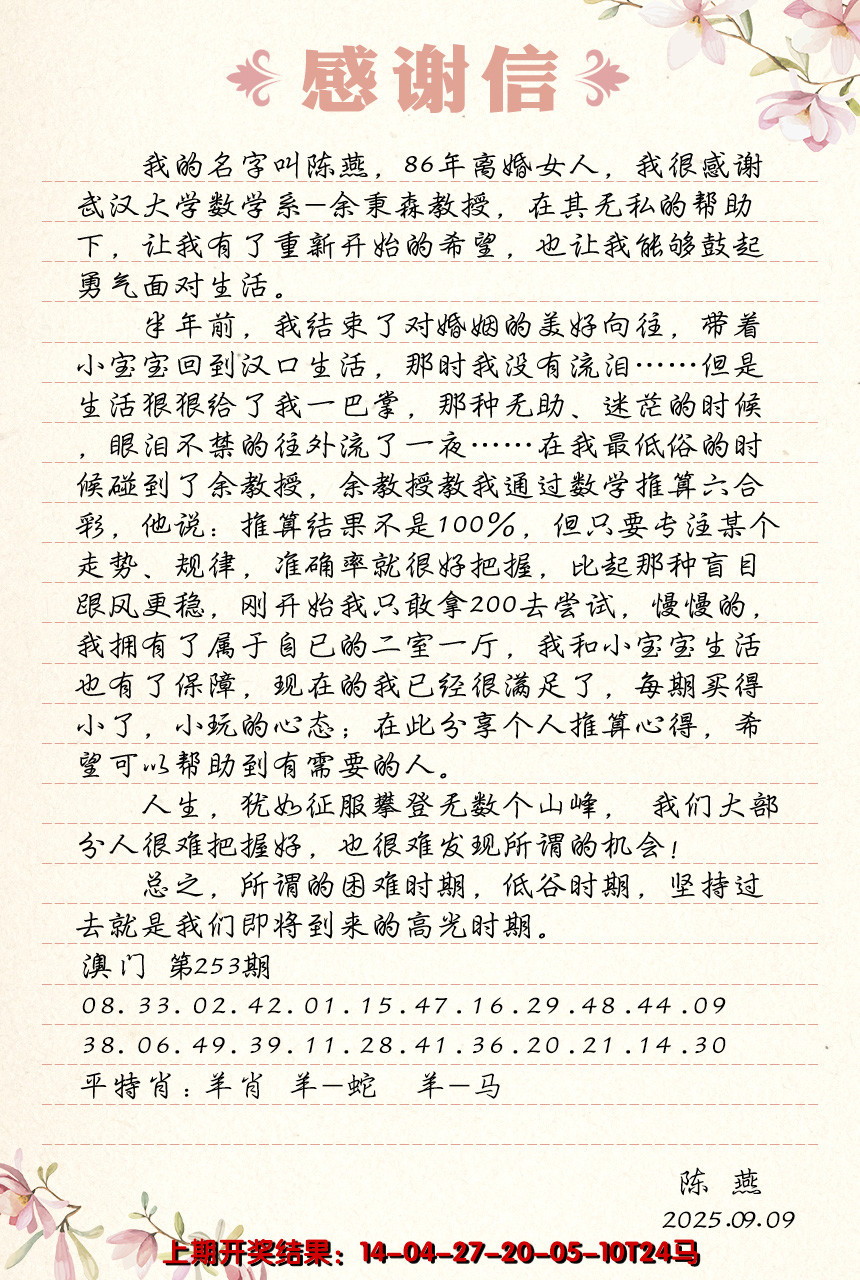 感谢信
我的名字叫陈燕，86年离婚女人，我很感谢
武汉大学数学系—余秉森教授，在其无私的帮助
下，让我有了重新开始的希望，也让我能够鼓起
勇气面对生活。
半年前，我结束了对婚姻的美好向往，带着
小宝宝回到汉口生活，那时我没有流泪……但是
生活狠狠给了我一巴掌，那种无助、迷茫的时候
，眼泪不禁的往外流了一夜……在我最低俗的时
候碰到了余教授，余教授教我通过数学推算六合
彩，他说：推算结果不是100%，但只要专注某个
走势、规律，准确率就很好把握，比起那种盲目
跟风更稳，刚开始我只敢拿200去尝试，慢慢的，
我拥有了属于自已的二室一厅，我和小宝宝生活
也有了保障，现在的我已经很满足了，每期买得
小了，小玩的心态；在此分享个人推算心得，希
望可以帮助到有需要的人。
人生，犹如征服攀登无数个山峰， 我们大部
分人很难把握好，也很难发现所谓的机会！
总之，所谓的困难时期，低谷时期，坚持过
去就是我们即将到来的高光时期。
澳门 第253期
08.33.02.42.01.15.47.16.29.48.44.09
38.06.49.39.11.28.41.36.20.21.14.30
平特肖：羊肖 羊—蛇 羊—马
陈 燕
2025.09.09
上期开奖结果：14-04-27-20-05-10T24马